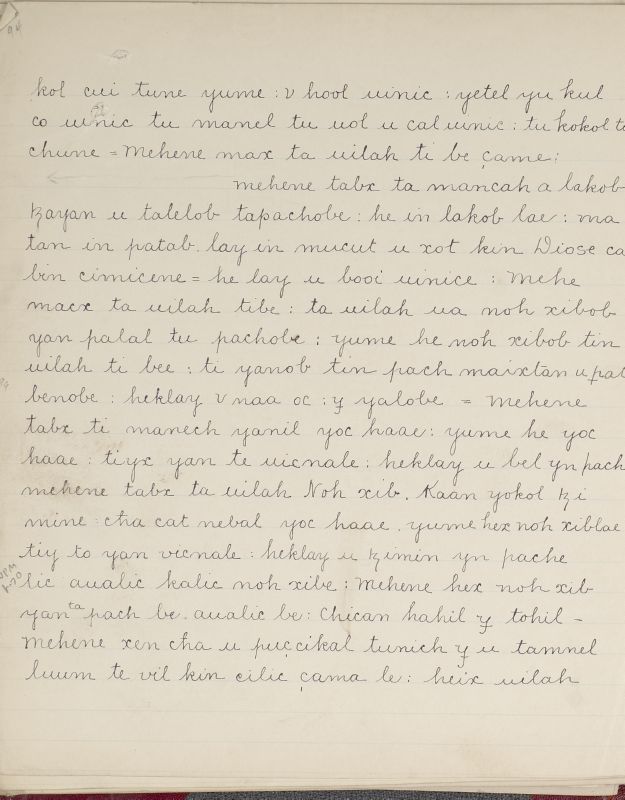 94
kol cui tune yume : v hool uinic : yetel yu kul
co uinic tu manel tu uol u cal uinic : tu kokol ta
chune = Mehene max ta uilah ti be çame :
mehene tabx ta mancah a lakob
ꜩayan u talelob tapachobe : he in lakob lae : ma
tan in patab. lay in mucut u xot kin Diose ca
bin cimicene = he lay u booi uinice : Mehe
macx ta uilah tibe : ta uilah ua noh xibob
yan palal tu pachobe ; yume he noh xibob tin
uilah ti bee : ti yanob tin pach maixtan u pat
benobe : heklay v naa oc : y yalobe = Mehene
tabx ti manech yanil yoc haae : yume he yoc
haae : tiyx yan te uicnale : heklay u bel yn pach
mehene tabx ta uilah Noh xib. Kaan yokol ꜩi
mine cha cat nebal yoc haae. yume hex noh xiblae
tiy to yan vicnale : heklay u ꜩimin yn pache
lic aualic kalic noh xibe : Mehene hex noh xib
yan ta pach be. aualic be : Chican hahil y tohil –
Mehene xen cha u pucçikal tunich y u tamnel
luum te vil kin cilic çama le : heix uilah